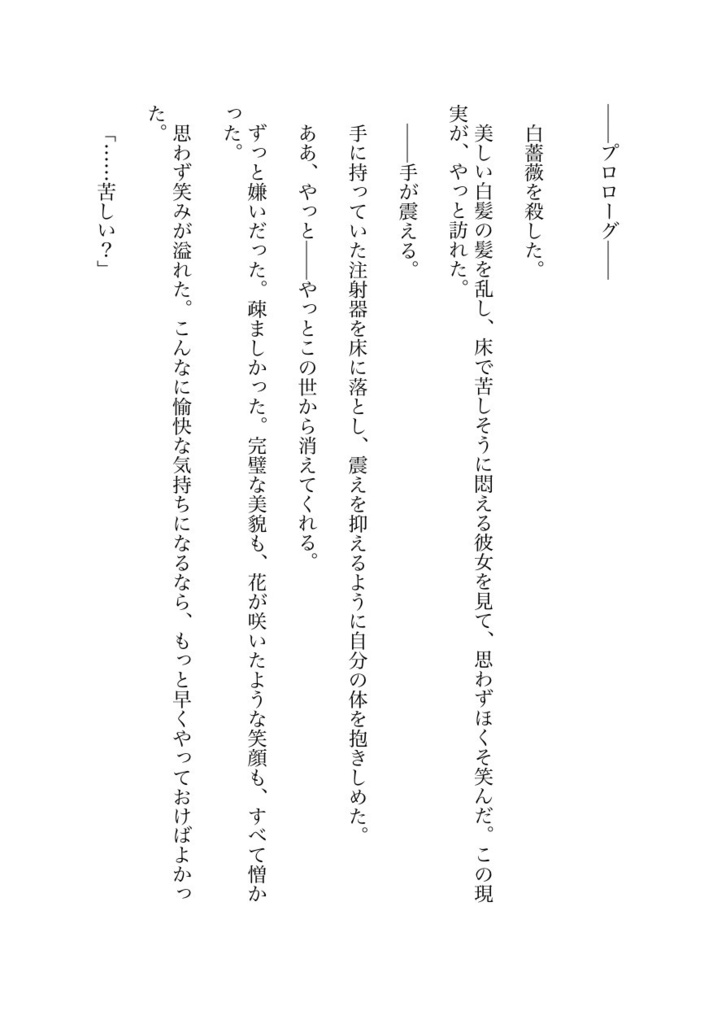 ――プロローグ――
白薔薇を殺した。
美しい白髪の髪を乱し、床で苦しそうに悶える彼女を見て、思わずほくそ笑んだ。この現
実が、やっと訪れた。
――手が震える。
手に持っていた注射器を床に落とし、震えを抑えるように自分の体を抱きしめた。
ああ、やっと――やっとこの世から消えてくれる。
ずっと嫌いだった。疎ましかった。完璧な美貌も、花が咲いたような笑顔も、すべて憎か
った。
思わず笑みが溢れた。こんなに愉快な気持ちになるなら、もっと早くやっておけばよかっ
た。
「……苦しい？」